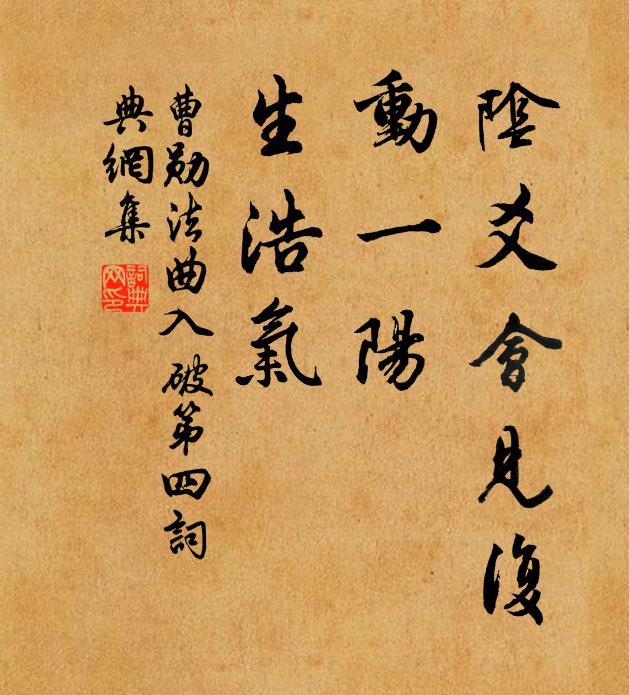 陰爻會見復
動一陽
生浩氣
曹勛法曲入破第四詞
典網集
詞典
网印